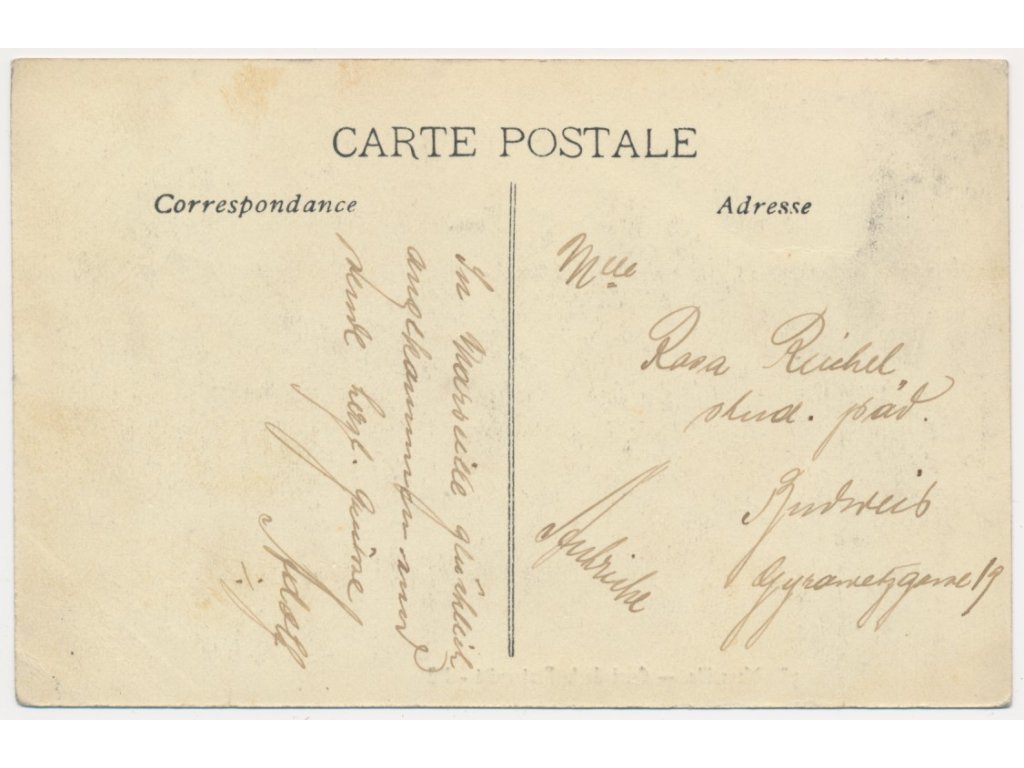 CARTE POSTALE
Correspondance
Adresse
In Marseille glücklich
angekommen und
sende herzl. Grüsse
Adolf
Mlle
Rosa Reichel
stud. päd.
Budweis
Gyrowetzgasse 19
Autriche